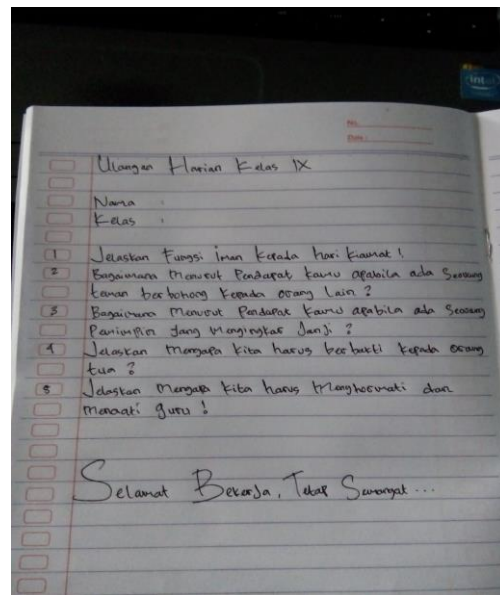 intel
No.
Date :
Ulangan Harian Kelas IX
Nama :
Kelas :
1 Jelaskan Fungsi iman Kepada Hari Kiamat !
2 Bagaimana Menurut Pendapat kamu apabila ada Seorang
teman berbohong Kepada orang lain ?
3 Bagaimana Menurut Pendapat kamu apabila ada Seorang
Pemimpin yang Mengingkar Janji ?
4 Jelaskan Mengapa Kita harus berbakti Kepada orang
tua ?
5 Jelaskan Mengapa Kita harus Menghormati dan
Menaati guru !
Selamat Bekerja, Tetap Semangat ...